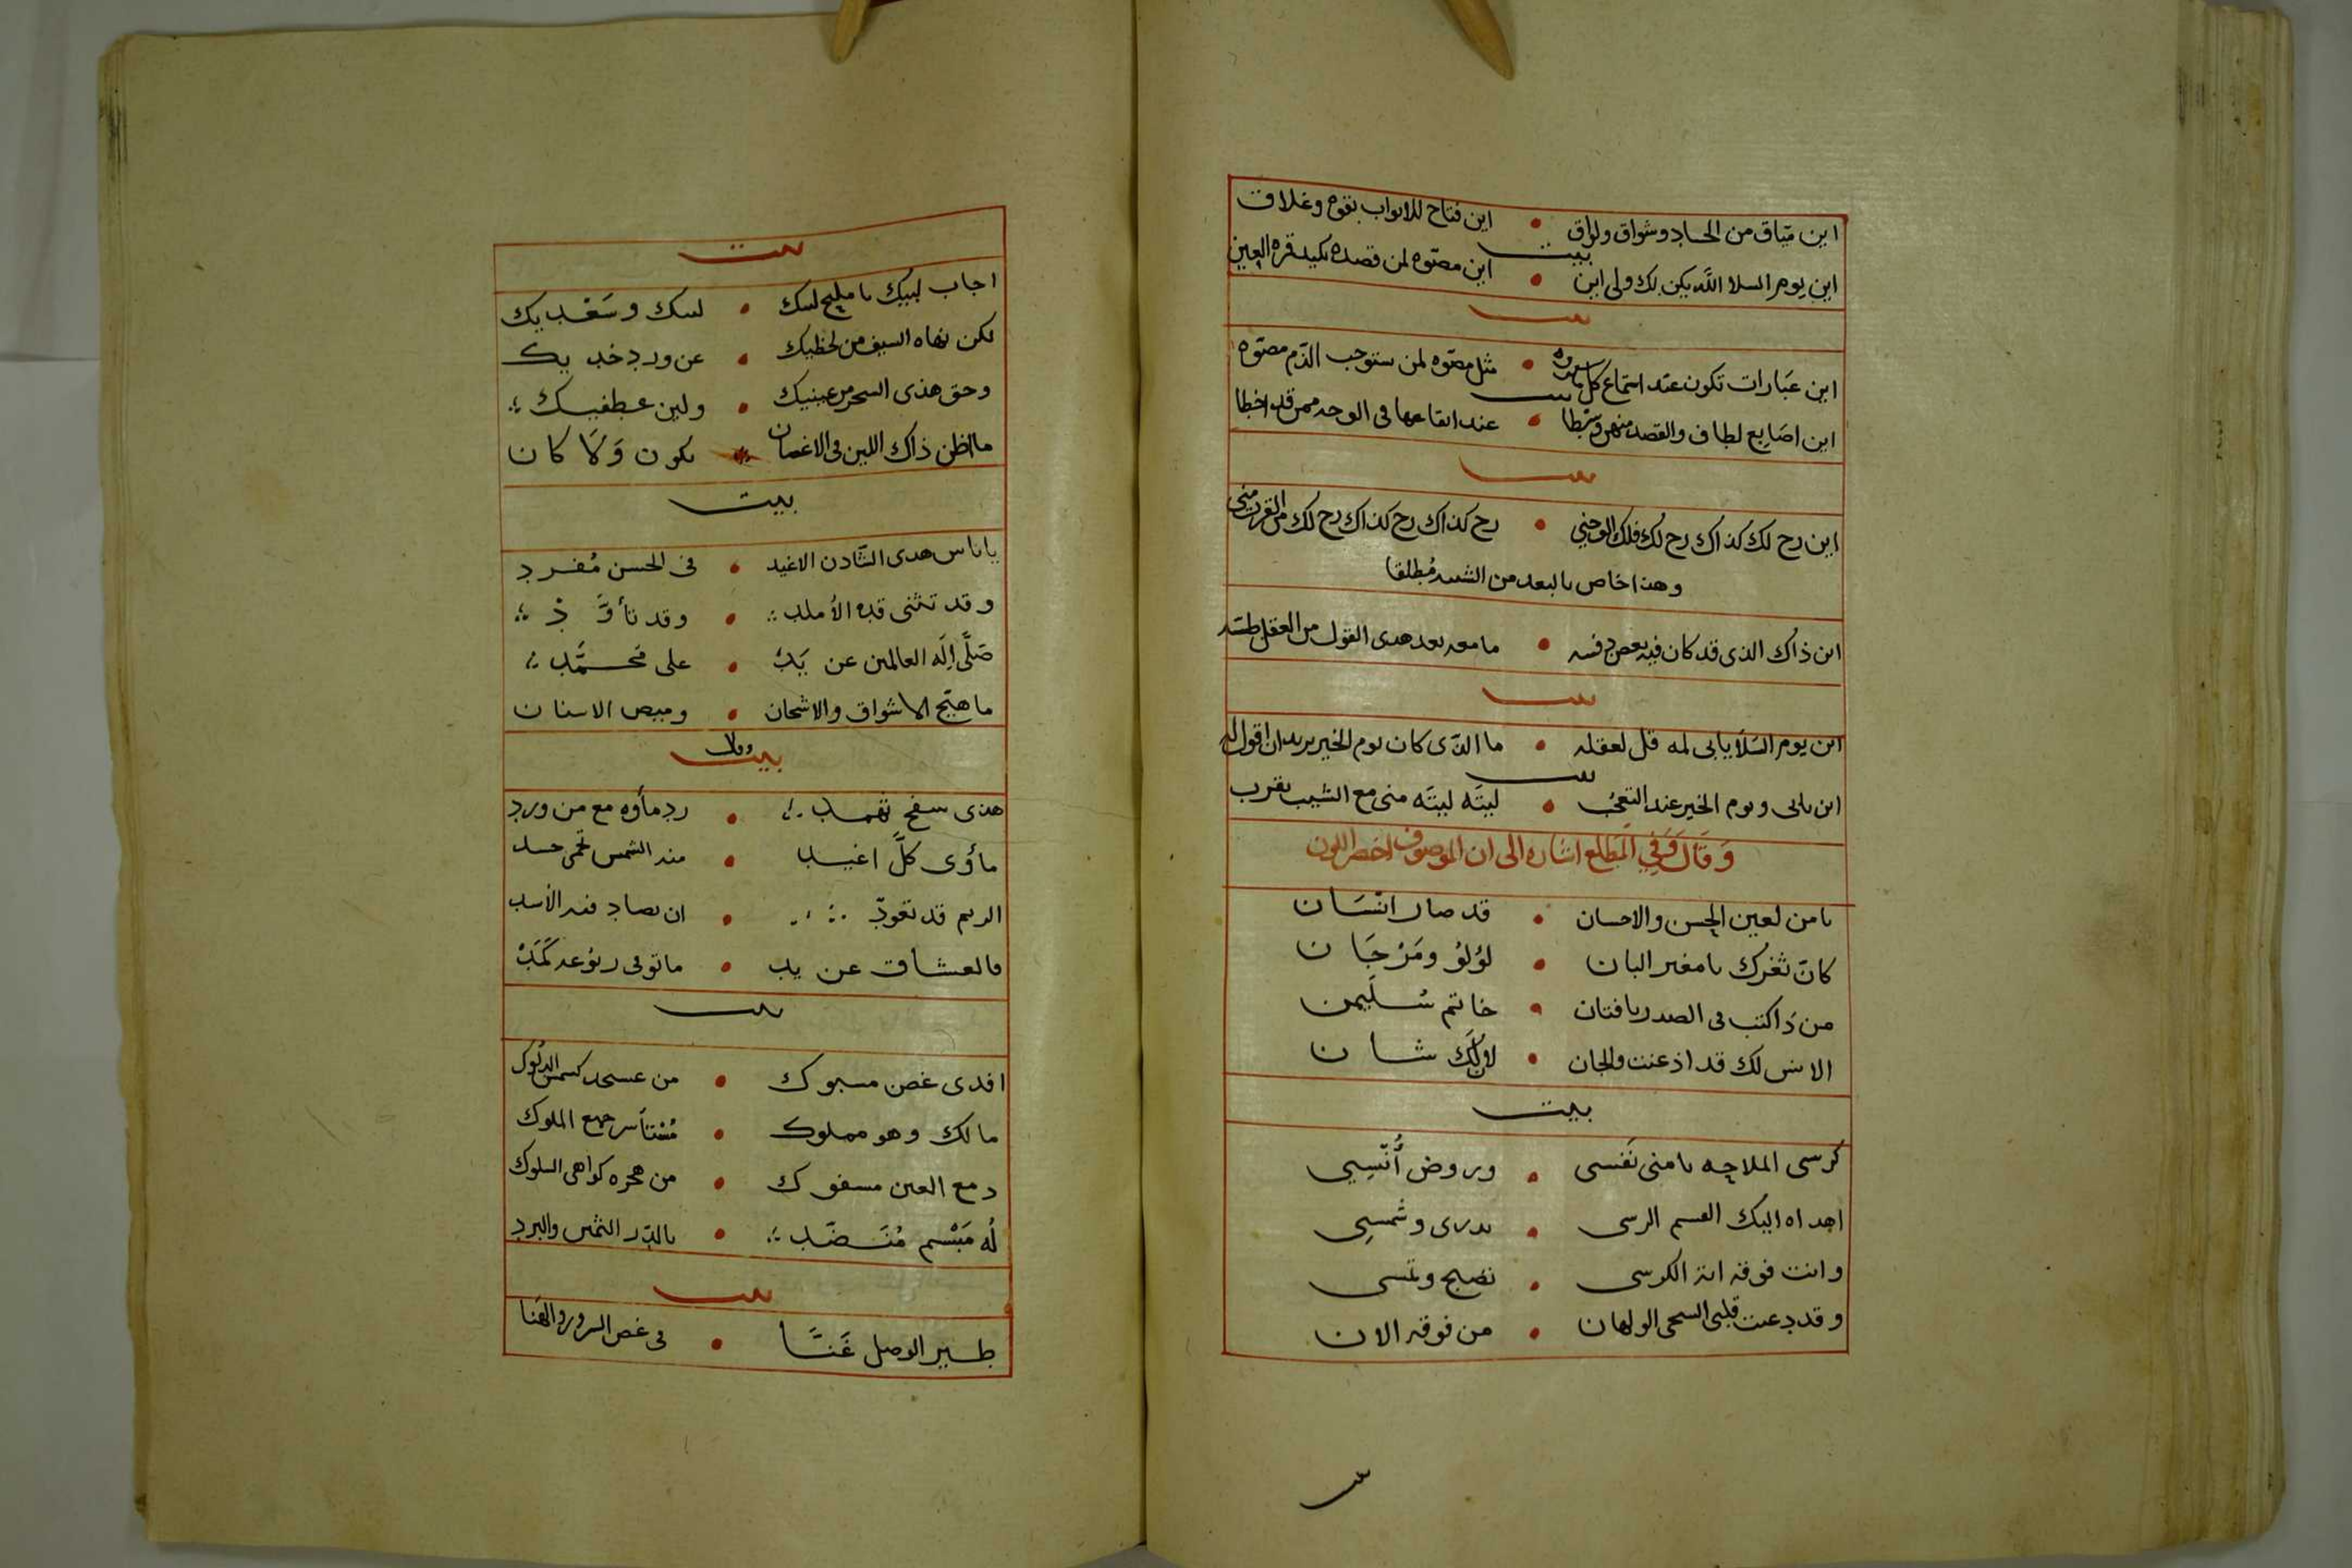 اين متاق من الحاد وشواق ولواق • اين فتاح للابواب بقوه وغلاق
بيت
اين يوم السلا الله يكن لك ولي اين • اين مصتوه لمن قصده يكيد قره العين
بيت
اين عبارات تكون عند استماع كل • مثل مصتوه لمن ستوجب الذم مصتوه
بيت
اين اصابع لطاف والقصد منهن وسطا • عند ايقاعها في الوجه ممن قد اخطا
بيت
اين رح لك كذاك رح لك فلك • رح كذاك رح كذاك رح لك من القرب مني
وهذا خاص بالبعد من الشبيه مطلقا
اين ذاك الذي قد كان فيه بعض دفسه • ما معه بعد هدى القول من العقل طسه
بيت
اين يوم السلا يابى لمه قل لعقله • ما الذي كان يوم الخير يريد ان اقول له
بيت
اين يابى ويوم الخير عند التعني • ليته ليته مني مع الشيب يقرب
وقال وفي المطالع اشاره الى ان الموصوف اخضر اللون
يا من لعين الحسن والاحسان • قد صار انسان
كان ثغرك يا مغير البان • لؤلؤ ومرجان
من ذا كتب في الصدر يا فتان • خاتم سليمن
الانس لك قد اذعنت والجان • لان لك شان
بيت
كرسي الملاحه يا منى نفسي • وروض أنسي
اهداه اليك القسم الرسي • بدري وشمسي
وانت فوقه اية الكرسي • تصبح وتمسي
وقد دعت قلبي السحي الولهان • من فوقه الان
بيت
اجاب لبيك يا مليح لبيك • لبيك وسعديك
لكن نهاه السيف من لحظيك • عن ورد خديك
وحق هذى السحر من عينيك • ولين عطفيك
ما اظن ذاك اللين في الاغصان • يكون ولا كان
بيت
يا ناس هدى الشادن الاغيد • في الحسن مفرد
وقد تثنى قده الأملد • وقد تأود
صلى اله العالمين عن يد • على محمد
ما هيج الاشواق والاشجان • وميض الاسنان
بيت
وله
هذى سفح ثهمد • رد مأوه مع من ورد
مأوى كل اغيد • منه الشمس تحمى حسد
الريم قد تعود • ان يصاد فيه الأسد
فالعشاق عن يد • ماتو في ربوعه كمد
بيت
افدى غصن مسبوك • من عسجد كشمس الدلوك
مالك وهو مملوك • مستأسر جميع الملوك
دمع العين مسفوك • من هجره كواهى السلوك
له مبسم منضد • بالدر الثمين والبرد
بيت
طير الوصل غنا • في غصن السرور والهنا